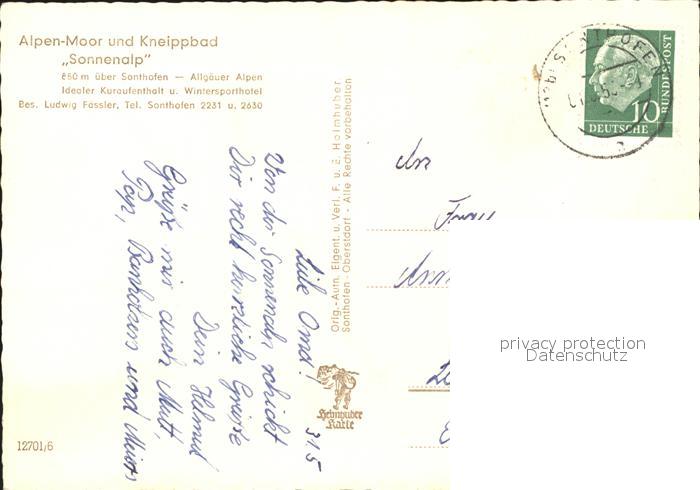 Alpen-Moor und Kneippbad
„Sonnenalp"
850 m über Sonthofen — Allgäuer Alpen
Idealer Kuraufenthalt u. Wintersporthotel
Bes. Ludwig Fässler, Tel. Sonthofen 2231 u. 2630
Orig.-Aufn. Eigent. u. Verl. F. u. E. Heimhuber
Sonthofen - Oberstdorf - Alle Rechte vorbehalten
31.5
Liebe Oma!
Von der Sonnenalp schickt
Dir recht herzliche Grüsse
Dein Helmut
Grüße mir auch Mutt,
Pap,
und
Heimhuber
Karte
12701/6
SONTHOFEN
10
DEUTSCHE
BUNDESPOST
An
Frau
privacy protection
Datenschutz